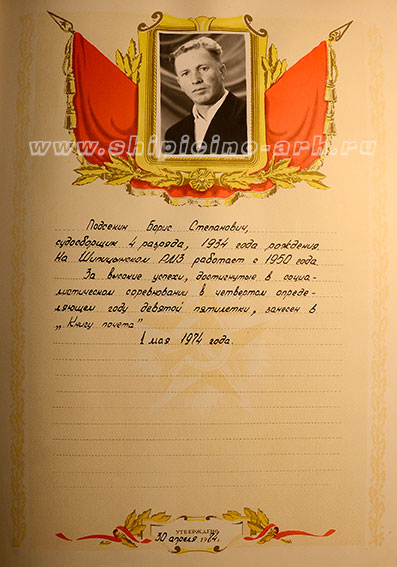 www.shipicino-ark.ru
Подсекин Борис Степанович,
судосборщик 4 разряда, 1934 года рождения.
На Шипицынском РМЗ работает с 1950 года.
За высокие успехи, достигнутые в социа-
листическом соревновании в четвертом опреде-
ляющем году девятой пятилетки, занесен в
„Книгу почета"
1 мая 1974 года.
УТВЕРЖДЕНО
30 апреля 1974г.